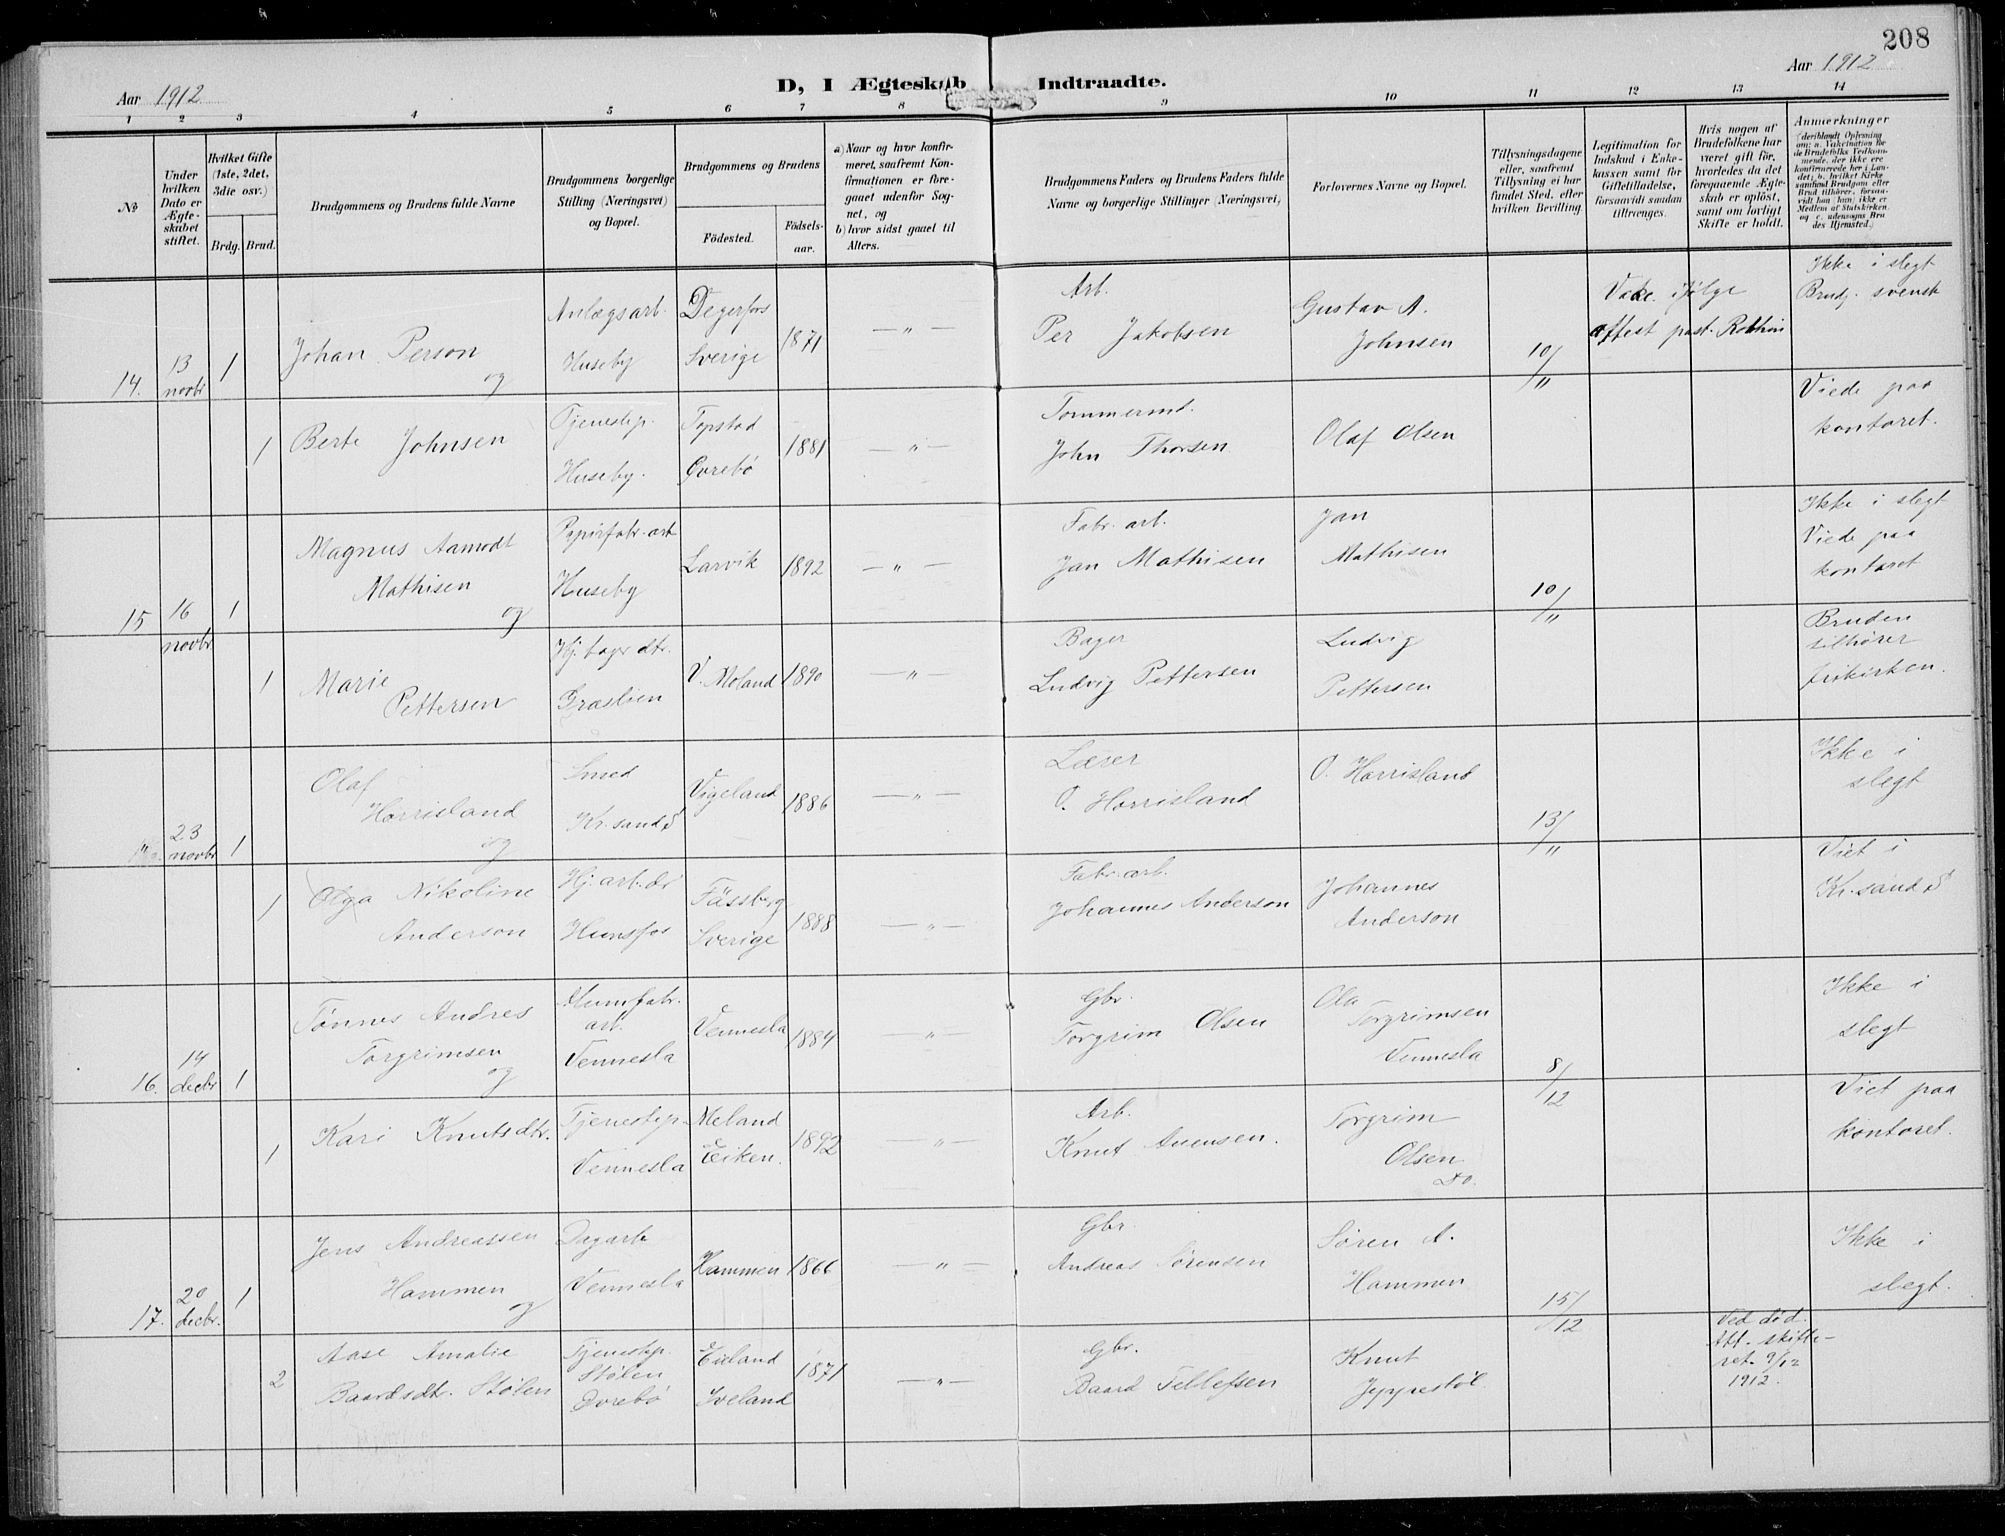 208
Aar 1912
D, I Ægteskab Indtraadte.
Aar 1912
1 2 3 4 5 6 7 8 9 10 11 12 13 14
No
Under hvilken Dato er Ægteskabet stiftet.
Hvilket Gifte (1ste, 2det, 3die osv.)
Brdg. Brud.
Brudgommens og Brudens fulde Navne
Brudgommens borgerlige Stilling (Næringsvei) og Bopæl.
Brudgommens og Brudens
Födested.
Födsels-aar.
a) Naar og hvor konfirmeret, saafremt Konfirmationen er foregaaet udenfor Sognet, og
b) hvor sidst gaaet til Alters.
Brudgommens Faders og Brudens Faders fulde Navne og borgerlige Stillinger (Næringsvei)
Forlovernes Navne og Bopæl.
Tillysningsdagene eller, saafremt Tillysning ei har fundet Sted, efter hvilken Bevilling.
Legitimation for Indskud i Enkekassen samt for Giftetilladelse, forsaavidt saadan tiltrænges.
Hvis nogen af Brudefolkene har været gift før, hvorledes da det foregaaende Ægteskab er oplöst, samt om lovligt Skifte er holdt.
Anmærkninger
(deriblandt Oplysning om: a. Vakcination for de Brudefolks Vedkommende, der ikke ere konfirmerede her i Landet; b. hvilket Kirkesamfund Brudgom eller Brud tilhører, forsaavidt han (hun) ikke er Medlem af Statskirken, og c. udensogns Brudes Hjemsted.)
14. 13 novbr 1 Johan Person og
Anlægsarb. Huseby
Degerfors Sverige 1871 — " —
Arb. Per Jakobsen
Gustav A. Johnsen
10/11
Vakc. ifølge attest past. Robhin
Ikke i slegt
Brudg. svensk
1 Berte Johnsen
Tjenestep. Huseby.
Topstad Øvrebö 1881 — " —
Tømmermd. John Thorsen
Olaf Olsen
Viede paa kontoret.
15 16 novbr 1 Magnus Aamodt Mathisen og
Papirfabr. arb Huseby
Larvik 1892 — " —
Fabr. arb. Jan Mathisen
Jan Mathisen
10/11
Ikke i slegt
Viede paa kontoret
1 Marie Pettersen
Hj. bager dtr. Graslien
V. Moland 1890 — " —
Bager Ludvig Pettersen
Ludvig Pettersen
Bruden tilhører frikirken.
23 novbr 1 Olaf Harrisland og
Smed Kr.sand S
Vigeland 1886 — " —
Læser O. Harrisland
O. Harrisland
13/11
Ikke i slegt
1 Olga Nikoline Anderson
Hj. arb. dr Hunsfos
Fässberg Sverige 1888 — " —
Fabr. arb. Johannes Anderson
Johannes Anderson
Viet i Kr.sand S
16. 14 decbr 1 Tönnes Andres Torgrimsen og
Hunsfabr. arb. Vennesla
Vennesla 1884 — " —
Gbr. Torgrim Olsen
Ola Torgrimsen Vennesla
8/12
Ikke i slegt
1 Kari Knutsdtr.
Tjenestep. Vennesla
Meland Eiken. 1892 — " —
Arb. Knut Auensen.
Torgrim Olsen do.
Viet paa kontoret.
17. 20 decbr. 1 Jens Andreassen Hammen og
Dagarb Vennesla
Hammen 1866 — " —
Gbr. Andreas Sörensen
Sören A. Hammen
15/12
Ikke i slegt.
2 Aase Amalie Baardsdtr. Stølen
Tjenestep. Stølen Øvrebö
Eieland Iveland 1871 — " —
Gbr. Baard Tellefsen
Knut Jeppestöl
Ved död.
Att. skifteret. 9/12 1912.